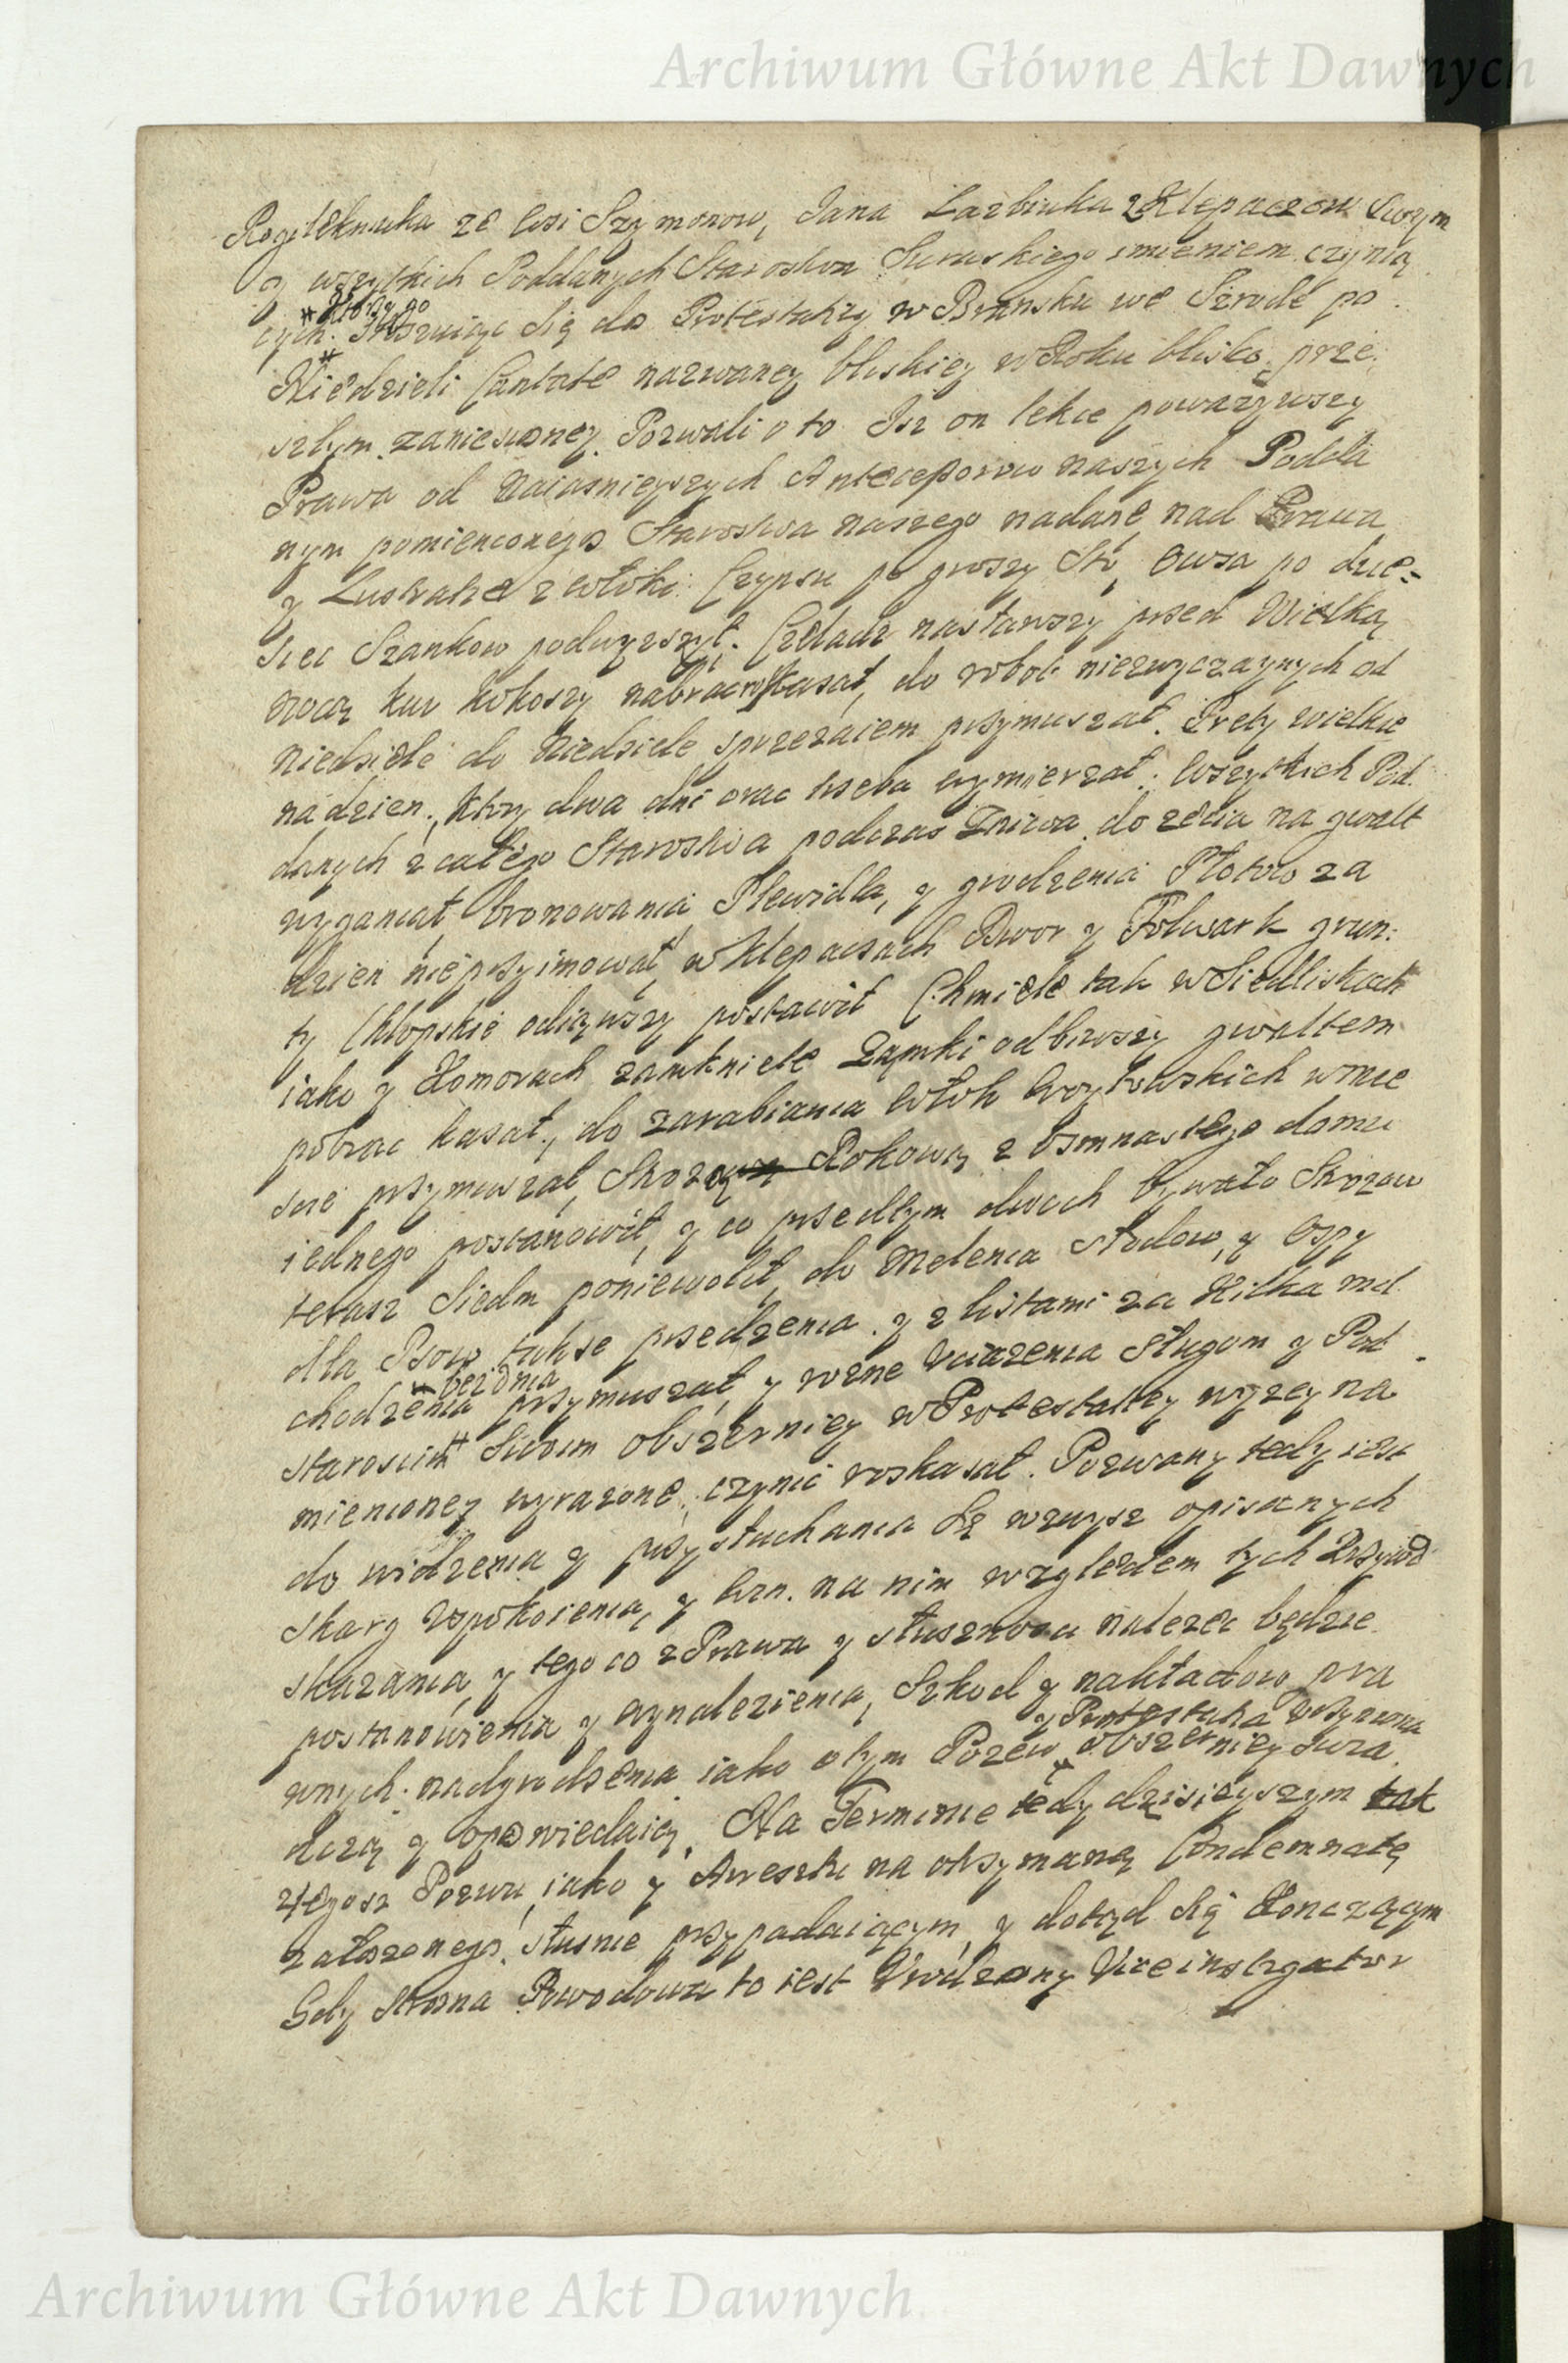 Archiwum Główne Akt Dawnych
ze wsi Szymonow, Jana Łazbiuka z Klepaczow Swym
y wszytkich Poddanych Starostwa Suraskiego imieniem czynią
* Którzy go
cych. Stosuiąc się do Protestatiey w Bransku we Szrodę po
Niedzieli Cantate nazwaney bliskiey w Roku blisko prze:
szłym zaniesioney. Pozwali o to Isz on lekce powazywszy
Prawa od Naiasnieyszych Antecessorow naszych Podda
nym pomienionego Starostwa naszego nadane nad Prawa
y Lustratie z włoki Czynszu po groszy Stu, Owsa po dzie=
sięc Szankow podwyszszył. Czeladz nasławszy przed Wielką
nocą kur kokoszy nabrac kasał, do robot niezwyczaynych od
niedziele do Niedziele sprzezaiem przymuszał. Pręty wielkie
na dzien, ktory dwa dni orac trzeba wymierzał. Wszytkich Pod
danych z całego Starostwa podczas Zniwa do zęcia na gwałt
wyganiał, bronowania Plewidła, y grodzenia Płotow za
dzien nieprzyimował, w Klepaczach Dwor y Folwark grun:
ty Chłopskie odiąwszy postawił Chmiele tak w Siedliskach
iako y Komorach zamkniete Zamki odbiwszy gwałtem
pobrac kasał, do zarabiania Włok Woytowskich w mie
scie przymuszał, Strozą Rokową z Osmnastego domu
iednego postanowił, y co przedtym dwoch bywało Strozow
terasz Siedm poniewolił, do Melenia Słodow, y Ospy
dla Psow, takze przedzenia y z listami za Kilka mil
bez dnia
chodzenia przymuszał, y rozne Uciązenia Sługom y Pod
staroscim Swoim obszerniey w Protestatiey wyzey na
mienioney wyrazone, czynić roskasał. Pozwany tedy iest
do widzenia y przysłuchania Się wzwysz opisanych
skarg Uspokoienia, y win na nim względem tych Krzywd
skazania, y tego co z Prawa y słusznosci nalezec będzie
postanowienia y wynalezienia, Szkod y nakładow pra
wnych nadgrodzenia iako o tym Pozew obszerniey swia
y Protestatia
dczą y opowiedaią. Na Terminie tedy dzisieyszym tak
z tegosz Pozwu, iako y Aresztu na otrzymaną Condemnatę
załozonego słusznie przypadaiącym, y dotąd się Konczącym
Gdy Strona Powodowa to iest Urodzony Viceinstigator
Archiwum Główne Akt Dawnych